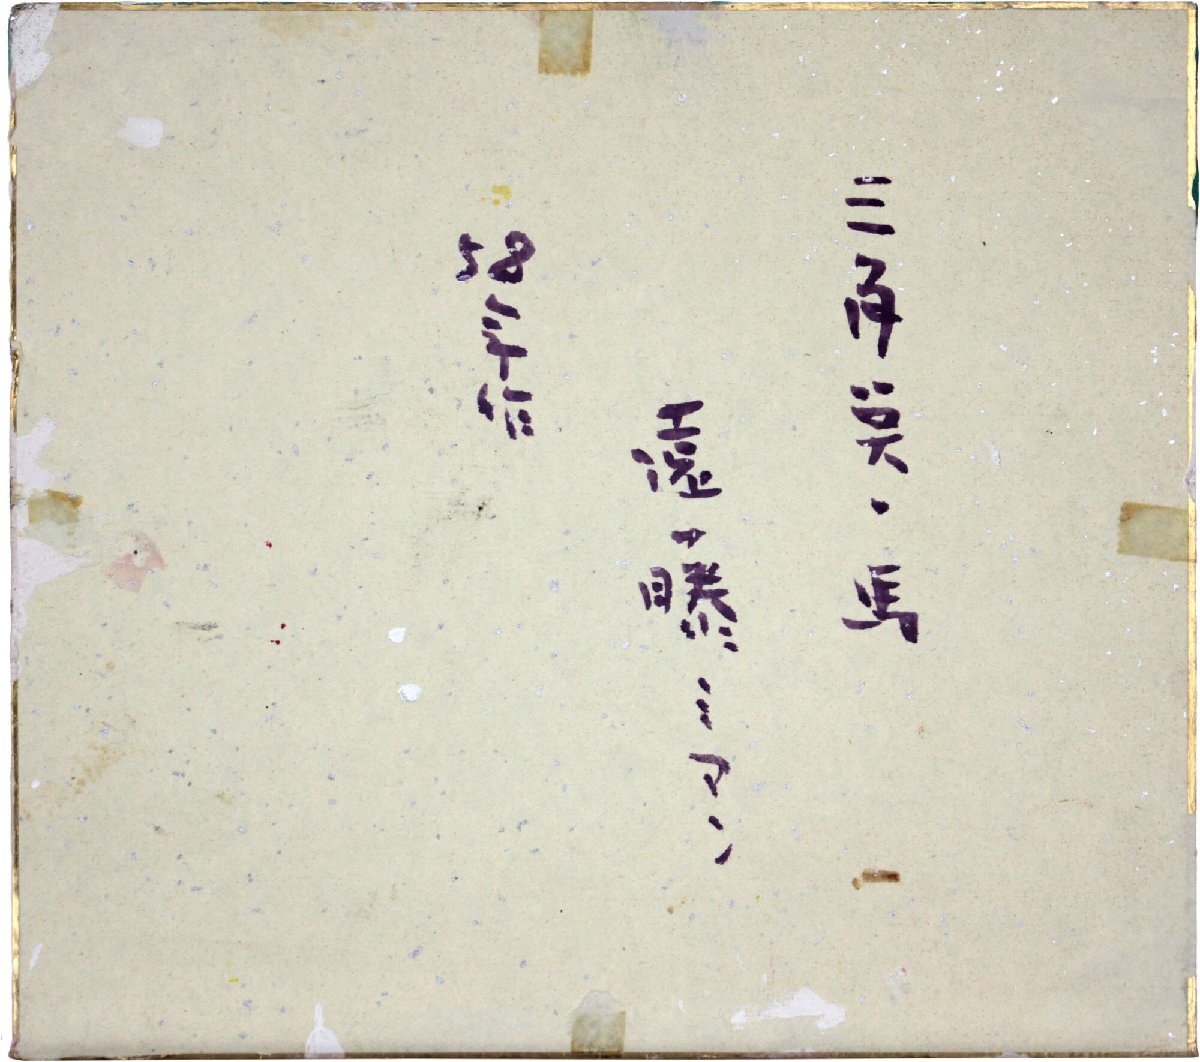 三角・馬
遠藤ミマン
58年作